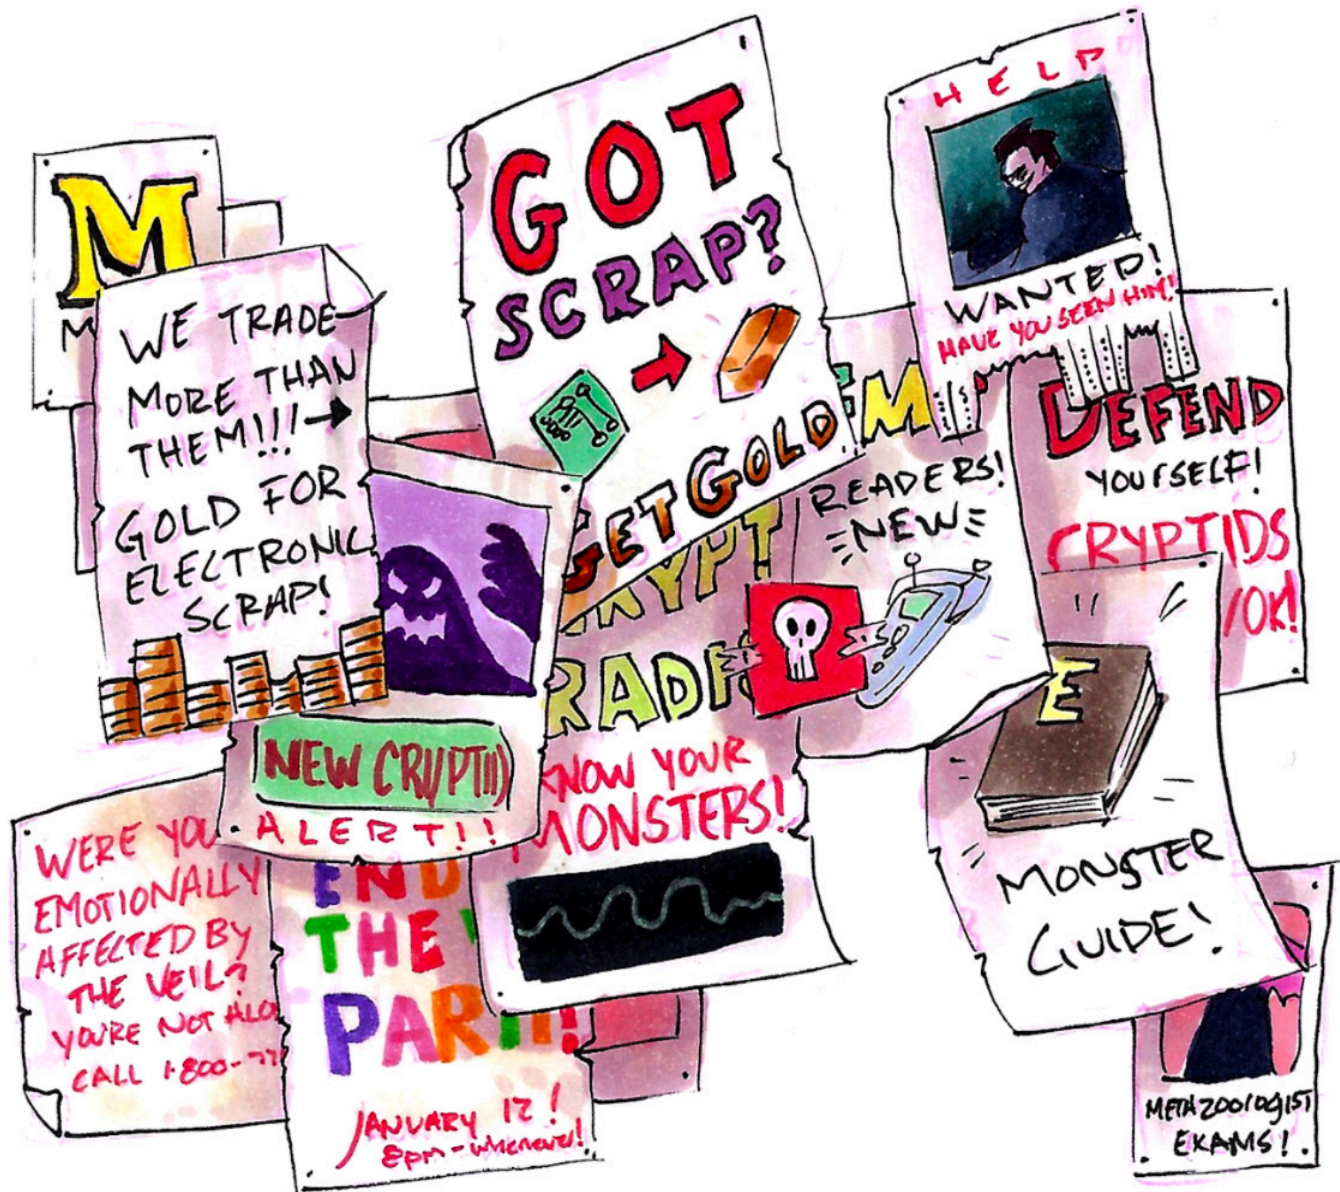 M
M
WE TRADE
MORE THAN
THEM!!!→
GOLD FOR
ELECTRONIC
SCRAP!
GOT
SCRAP?
GET GOLD
HELP
WANTED!
HAVE YOU SEEN HIM!
EM
READERS!
NEW
DEFEND
YOURSELF!
CRYPTIDS
/OK!
NEW CRYPTID
ALERT!!
CRYPT
RADI
KNOW YOUR
MONSTERS!
E
MONSTER
GUIDE!
WERE YOU
EMOTIONALLY
AFFECTED BY
THE VEIL?
YOU'RE NOT ALO
CALL 1-800-77
END
THE
PAR
JANUARY 12!
8pm - whenever!
METAZOOlOgIST
EXAMS!